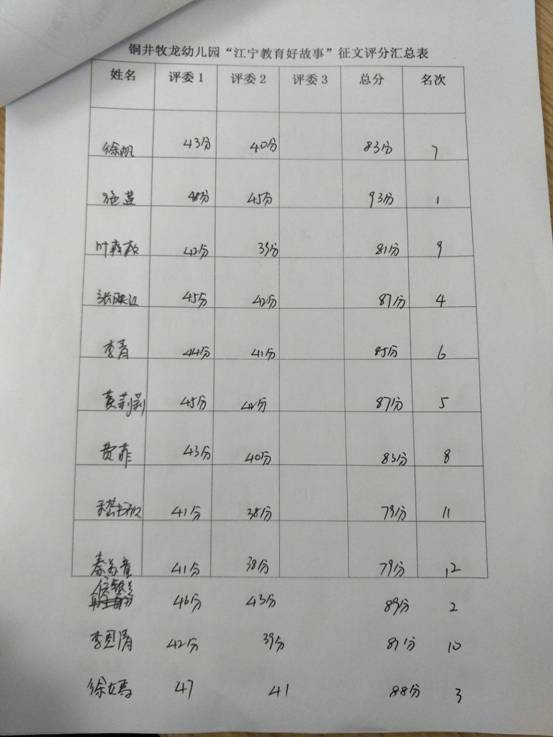 铜井牧龙幼儿园“江宁教育好故事”征文评分汇总表
姓名 评委1 评委2 评委3 总分 名次
徐帆 43分 40分 83分 7
施蓝 48分 45分 93分 1
叶 42分 39分 81分 9
张 45分 42分 87分 4
李青 44分 41分 85分 6
黄莉莉 45分 42分 87分 5
费菲 43分 40分 83分 8
41分 38分 79分 11
秦 41分 38分 79分 12
46分 43分 89分 2
李 42分 39分 81分 10
徐 47 41 88分 3